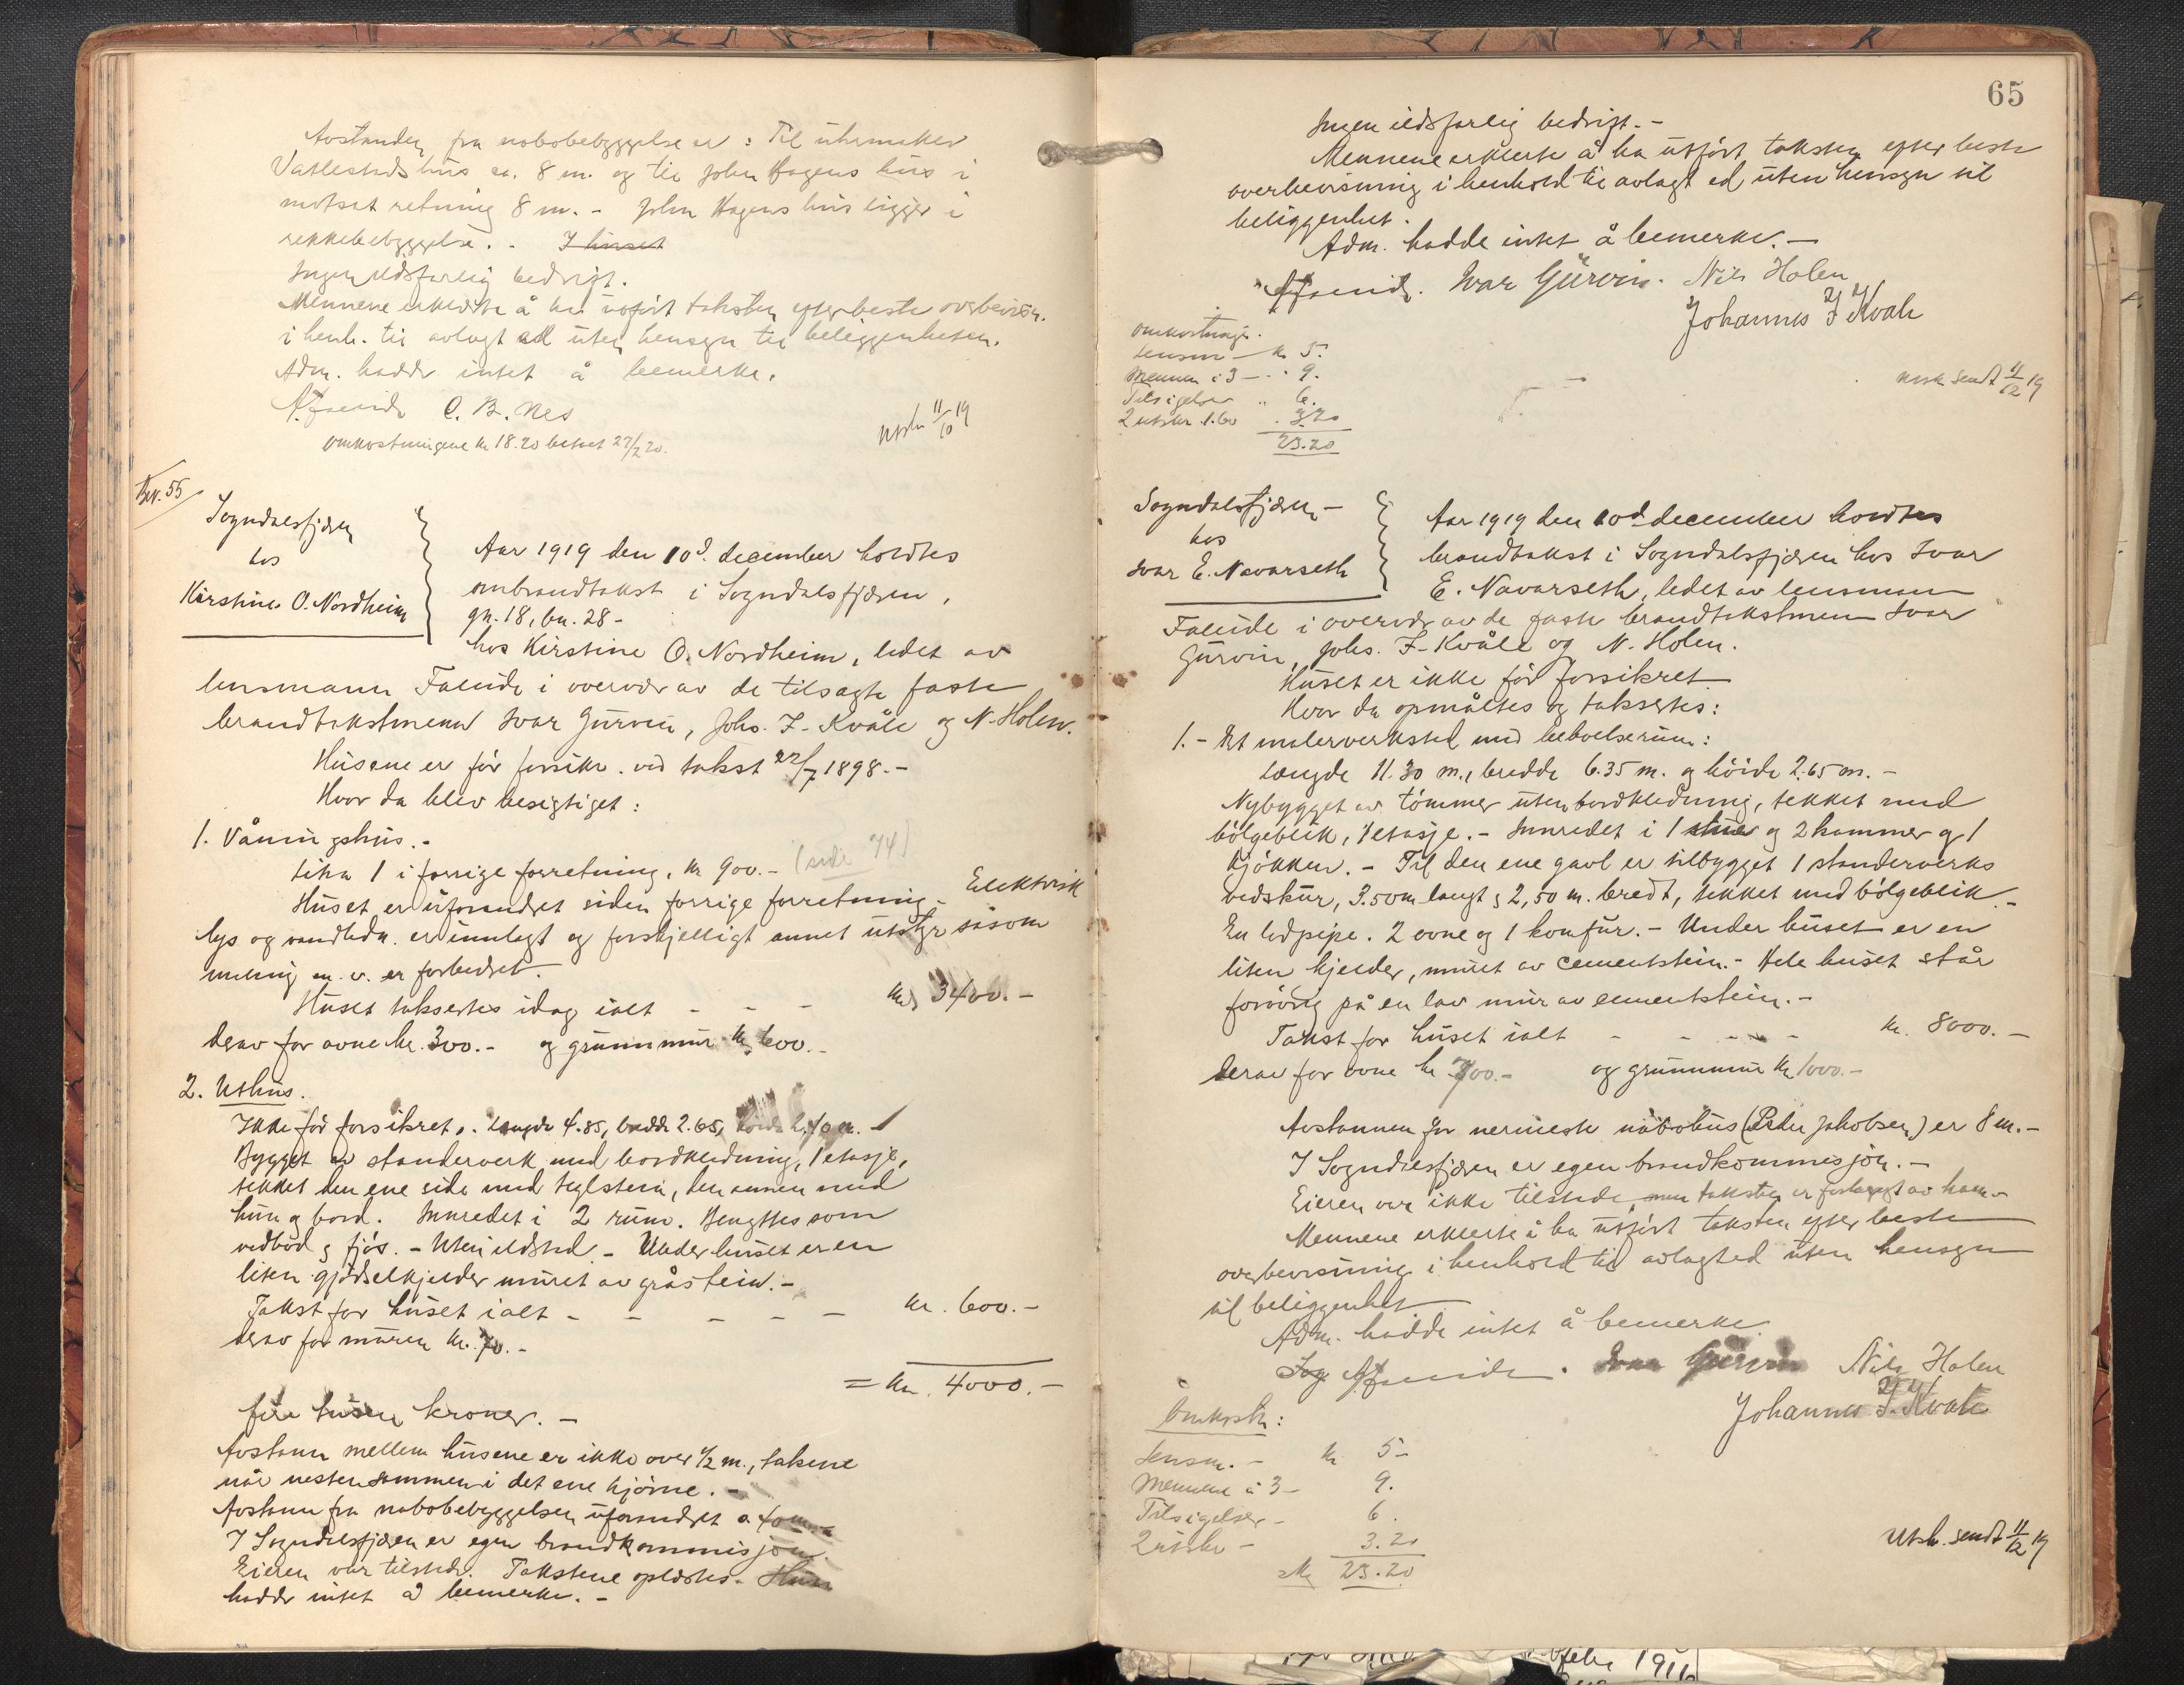 Avstanden fra nabobebyggelse er: Til uhrmaker
Vatlestads hus ca. 8 m. og til John Hagens hus i
motsat retning 8 m. - John Hagens hus ligger i
rekkebebyggelse. - I huset
Ingen ildsfarlig bedrift.
Mennene erklærte å ha utført taksten efter beste overbevisn.
i henh. til avlagt ed uten hensyn til beliggenheten.
Adm. hadde intet å bemerke.
A. Faleide C. B. Nes
omkostningene kr 18.20 betalt 27/2 20.
utskr 11/10 19
Bev. 55
Sogndalsfjæren
hos
Kirstine O. Nordheim
Aar 1919 den 10d. december holdtes
ombrandtakst i Sogndalsfjæren,
gn. 18, bn. 28 -
hos Kirstine O. Nordheim, ledet av
lensmann Faleide i overvær av de tilsagte faste
brandtakstmenn Ivar Gurvin, Johs. J. Kvåle og N. Holen.
Husene er før forsikr. ved takst 22/7 1898. -
Hvor da blev besigtiget:
1. Våningshus. -
Litra 1 i forrige forretning, kr 900. - (side 74)
Huset er uforandret siden forrige forretning. Elektrisk
lys og vandledn. er innlagt og forskjelligt annet utstyr såsom
maling m. v. er forbedret.
Huset taksertes idag ialt - - - kr 3400. -
derav for ovne kr. 300. - og grunnmur kr 600. -
2. Uthus.
Ikke før forsikret. Længde 4.85, bredde 2.65, høide 2.40 m.
Bygget av standerverk med bordkledning, 1 etasje,
tekket den ene side med teglstein, den annen med
hun og bord. Innredet i 2 rum. Benyttes som
vedbod & fjøs. - Uten ildsted. - Under huset er en
liten gjødselkjelder muret av gråstein. -
Takst for huset ialt - - - - - kr. 600. -
derav for muren kr. 70. -
= kr. 4000. -
fire tusen kroner. -
Avstann mellem husene er ikke over 1/2 m., takene
når nesten sammen i det ene hjørne. -
Avstann fra nabobebyggelsen uforandret
I Sogndalsfjæren er egen brandkommisjon.
Eieren var tilstede. Takstene oplæstes. Hun
hadde intet å bemerke. -
65
Ingen ildsfarlig bedrift. -
Mennene erklærte å ha utført taksten efter beste
overbevisning i henhold til avlagt ed uten hensyn til
beliggenhet.
Adm. hadde intet å bemerke. -
A Faleide. Ivar Gurvin. Nils Holen
Johannes J Kvåle
omkostninger.
Lensm - kr 5.
Mennene à 3 - 9.
Tilsigelser " 6.
2 utskr. 1.60 . 3.20
23.20
utsk. sendt 11/12 19
Sogndalsfjæren -
hos
Ivar E. Navarseth
Aar 1919 den 10d december holdtes
brandtakst i Sogndalsfjæren hos Ivar
E. Navarseth, ledet av lensmann
Faleide i overvær av de faste brandtakstmenn Ivar
Gurvin, Johs. J. Kvåle og N. Holen.
Huset er ikke før forsikret.
Hvor da opmåltes og taksertes:
1. - Et malerverksted med beboelserum:
Længde 11.30 m., bredde 6.35 m. og høide 2.65 m. -
Nybygget av tømmer uten bordkledning, tekket med
bølgeblik, 1 etasje. - Innredet i 1 stue og 2 kammer og 1
kjøkken. - Til den ene gavl er tilbygget 1 standerverks
vedskur, 3.50 m langt & 2,50 m. bredt, tekket med bølgeblik. -
En lodpipe. 2 ovne og 1 komfur. - Under huset er en
liten kjelder, muret av cementstein. - Hele huset står
forøvrig på en lav mur av cementstein. -
Takst for huset ialt - - - - kr. 8000. -
derav for ovne kr 700. - og grunnmur kr 1000. -
Avstannen for nermeste nabohus (Peder Jakobsen) er 8 m. -
I Sogndalsfjæren er egen brandkommisjon. -
Eieren var ikke tilstede, men taksten er forlangt av ham. -
Mennene erklærte å ha utført taksten efter beste
overbevisning i henhold til avlagt ed uten hensyn
til beliggenhet
Adm. hadde intet å bemerke
A Faleide. Ivar Gurvin Nils Holen
Johannes J. Kvåle
Omkostn:
Lensm. - kr 5 -
Mennene à 3 - 9.
Tilsigelser - 6.
2 utskr - 3.20
kr 23.20
Utsk. sendt 11/12 19